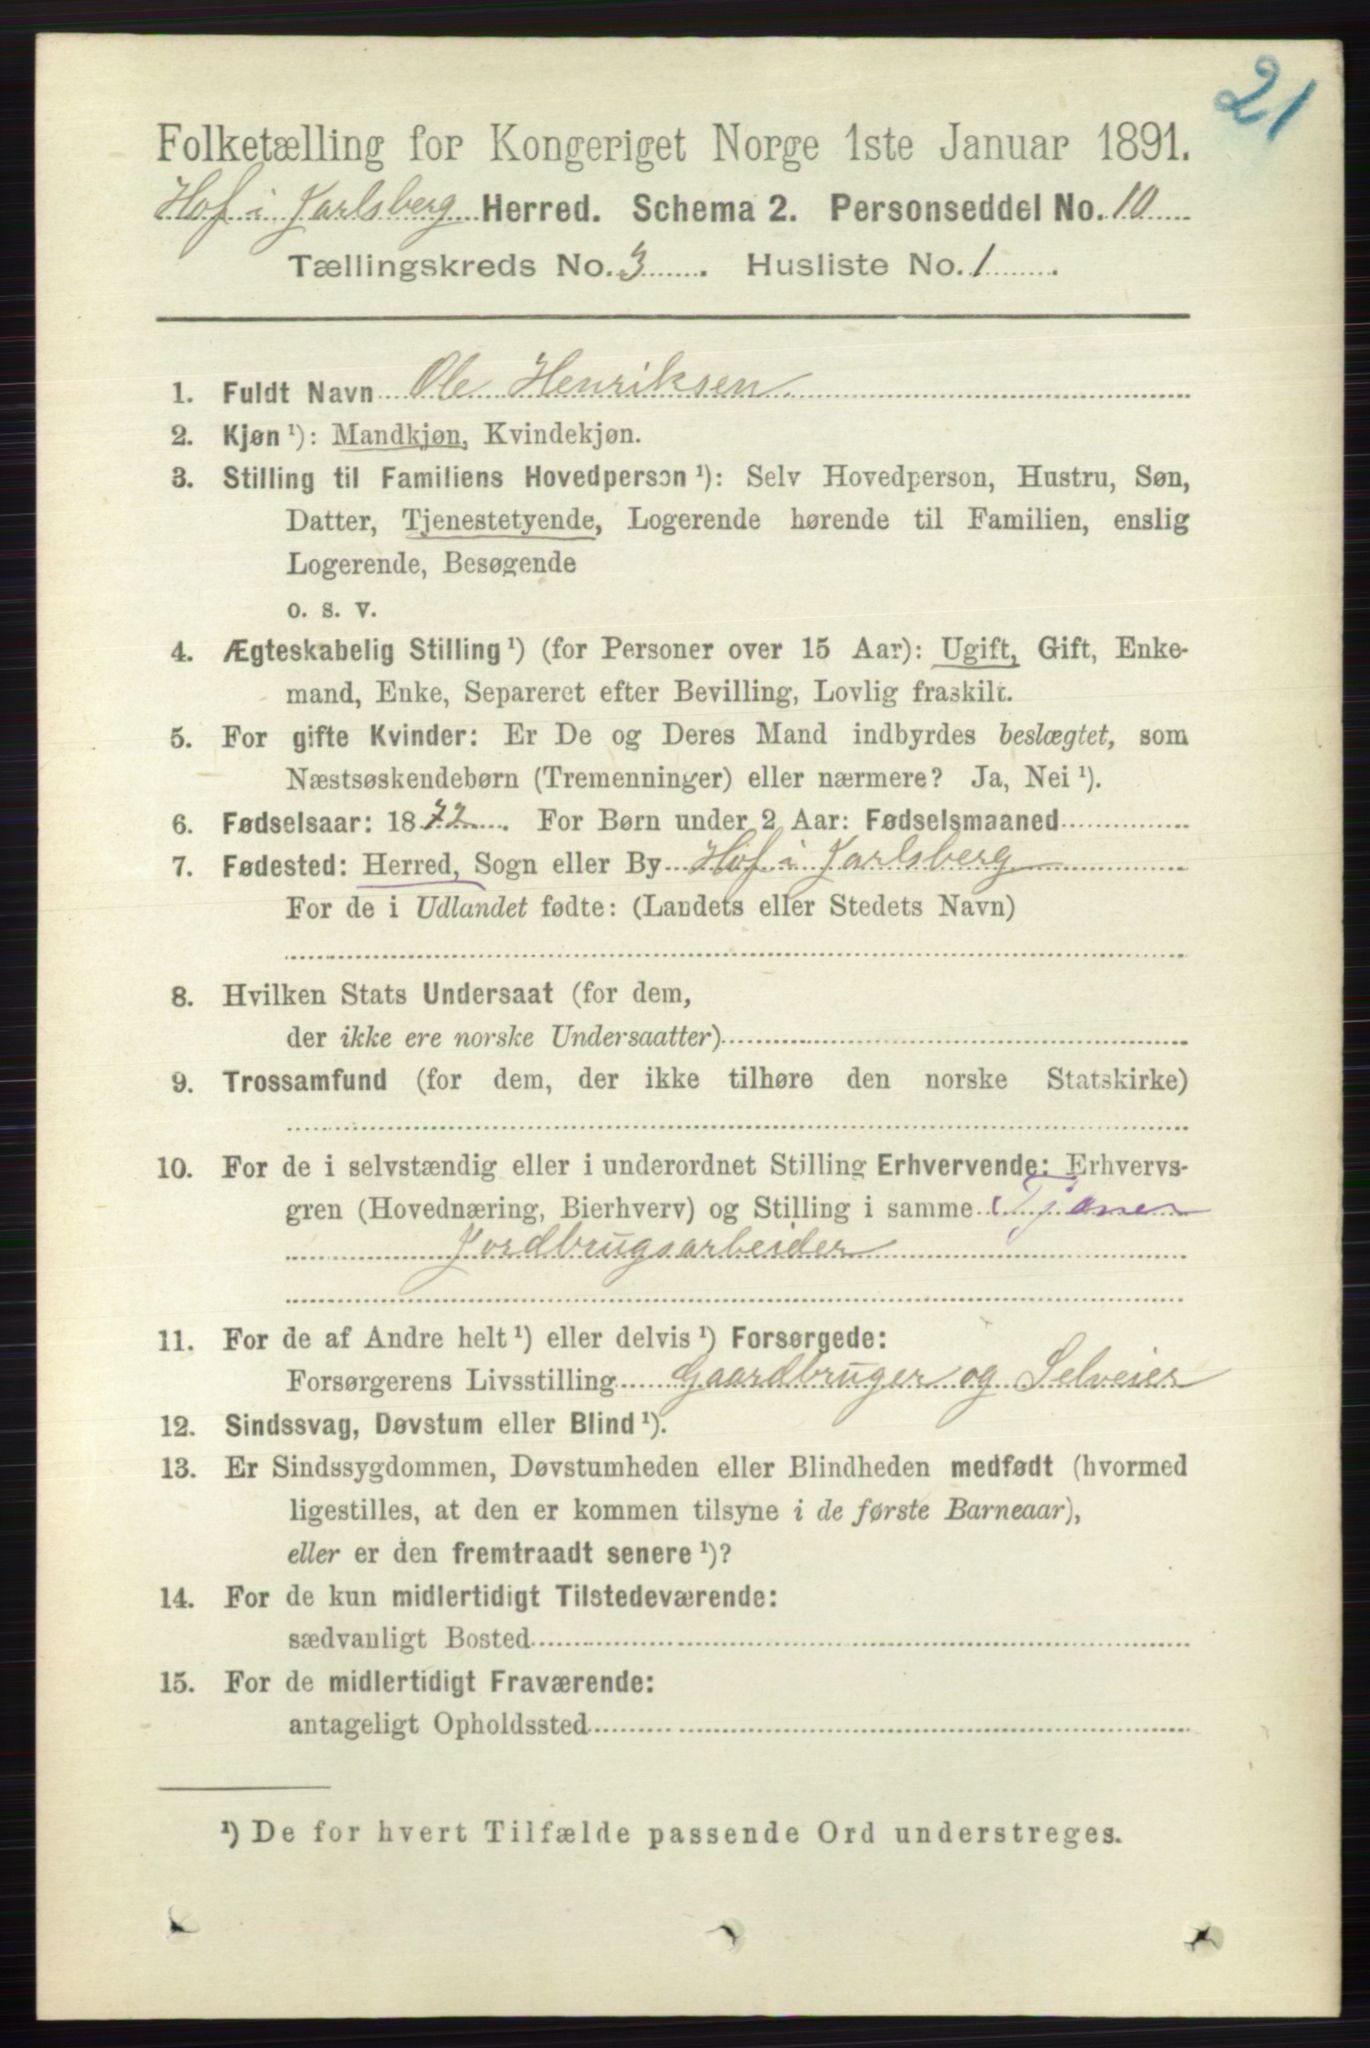 21
Folketælling for Kongeriget Norge 1ste Januar 1891.
Hof i Jarlsberg Herred. Schema 2. Personseddel No. 10
Tællingskreds No. 3. Husliste No. 1.
1. Fuldt Navn Ole Henriksen.
2. Kjøn ¹): Mandkjøn, Kvindekjøn.
3. Stilling til Familiens Hovedperson ¹): Selv Hovedperson, Hustru, Søn,
Datter, Tjenestetyende, Logerende hørende til Familien, enslig
Logerende, Besøgende
o. s. v.
4. Ægteskabelig Stilling ¹) (for Personer over 15 Aar): Ugift, Gift, Enke-
mand, Enke, Separeret efter Bevilling, Lovlig fraskilt.
5. For gifte Kvinder: Er De og Deres Mand indbyrdes beslægtet, som
Næstsøskendebørn (Tremenninger) eller nærmere? Ja, Nei ¹).
6. Fødselsaar: 1872. For Børn under 2 Aar: Fødselsmaaned
7. Fødested: Herred, Sogn eller By Hof i Jarlsberg
For de i Udlandet fødte: (Landets eller Stedets Navn)
8. Hvilken Stats Undersaat (for dem,
der ikke ere norske Undersaatter)
9. Trossamfund (for dem, der ikke tilhøre den norske Statskirke)
10. For de i selvstændig eller i underordnet Stilling Erhvervende: Erhvervs-
gren (Hovednæring, Bierhverv) og Stilling i samme Tjener
Jordbrugsarbeider
11. For de af Andre helt ¹) eller delvis ¹) Forsørgede:
Forsørgerens Livsstilling Gaardbruger og Selveier
12. Sindssvag, Døvstum eller Blind ¹).
13. Er Sindssygdommen, Døvstumheden eller Blindheden medfødt (hvormed
ligestilles, at den er kommen tilsyne i de første Barneaar),
eller er den fremtraadt senere ¹)?
14. For de kun midlertidigt Tilstedeværende:
sædvanligt Bosted
15. For de midlertidigt Fraværende:
antageligt Opholdssted
¹) De for hvert Tilfælde passende Ord understreges.